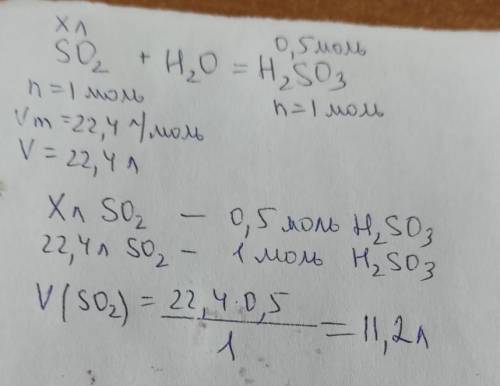 Xл 0,5 моль
SO₂ + H₂O = H₂SO₃
n = 1 моль n = 1 моль
Vm = 22,4 л/моль
V = 22,4 л
Xл SO₂ — 0,5 моль H₂SO₃
22,4л SO₂ – 1 моль H₂SO₃
V(SO₂) = 22,4·0,5 / 1 = 11,2л